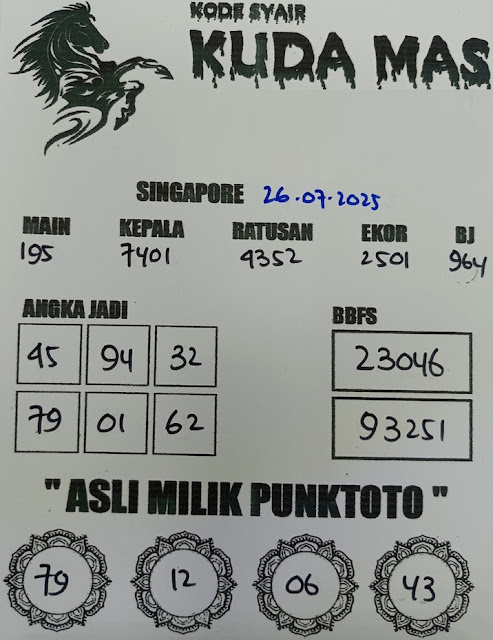 KODE SYAIR
KUDA MAS
SINGAPORE 26.07.2025
MAIN KEPALA RATUSAN EKOR BJ
195 7401 4352 2501 964
ANGKA JADI BBFS
45 94 32 23046
79 01 62 93251
" ASLI MILIK PUNKTOTO "
79 12 06 43